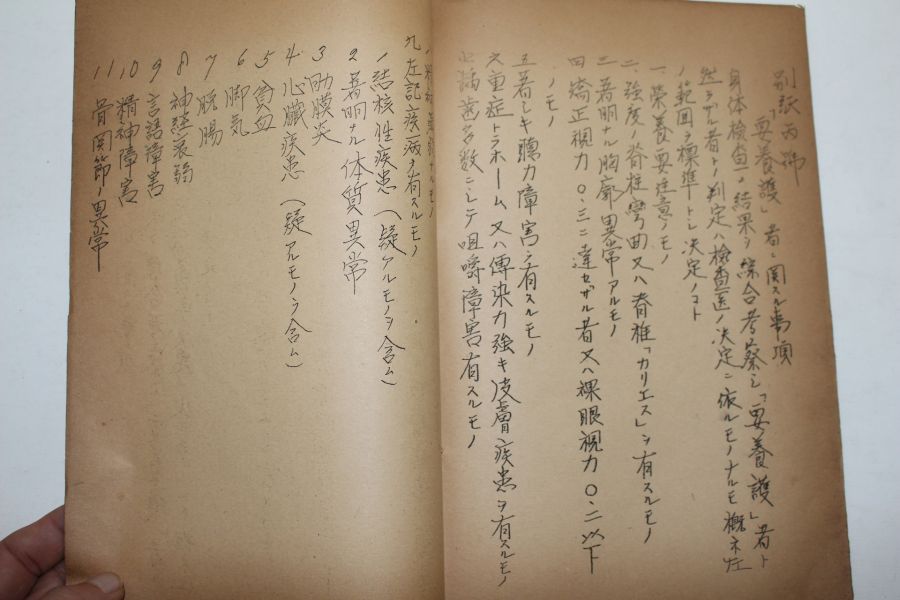 別紙丙号
「要養護」者ニ関スル事項
身体検査ノ結果ヲ綜合考察シ「要養護」者ト
然ラザル者トノ判定ハ検査医ノ決定ニ依ルモノナルモ概ネ左
ノ範囲ヲ標準トシ決定ノコト
一、栄養要注意ノモノ
二、強度ノ脊柱弯曲又ハ脊椎「カリエス」ヲ有スルモノ
三、著明ナル胸廓異常アルモノ
四 矯正視力〇.三ニ達セザル者又ハ裸眼視力〇.二以下
ノモノ
五 著シキ聴力障害ヲ有スルモノ
六 重症トラホーム又ハ傳染力強キ皮膚疾患ヲ有スルモノ
七 齲歯多数ニシテ咀嚼障害有スルモノ
九 左記疾病ヲ有スルモノ
1 結核性疾患(疑アルモノヲ含ム)
2 著明ナル体質異常
3 肋膜炎
4 心臓疾患(疑アルモノヲ含ム)
5 貧血
6 脚気
7 脱腸
8 神経衰弱
9 言語障害
10 精神障害
11 骨関節ノ異常